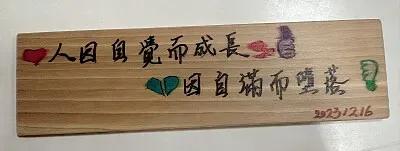 人因自覺而成長
因自滿而墮落
20231216